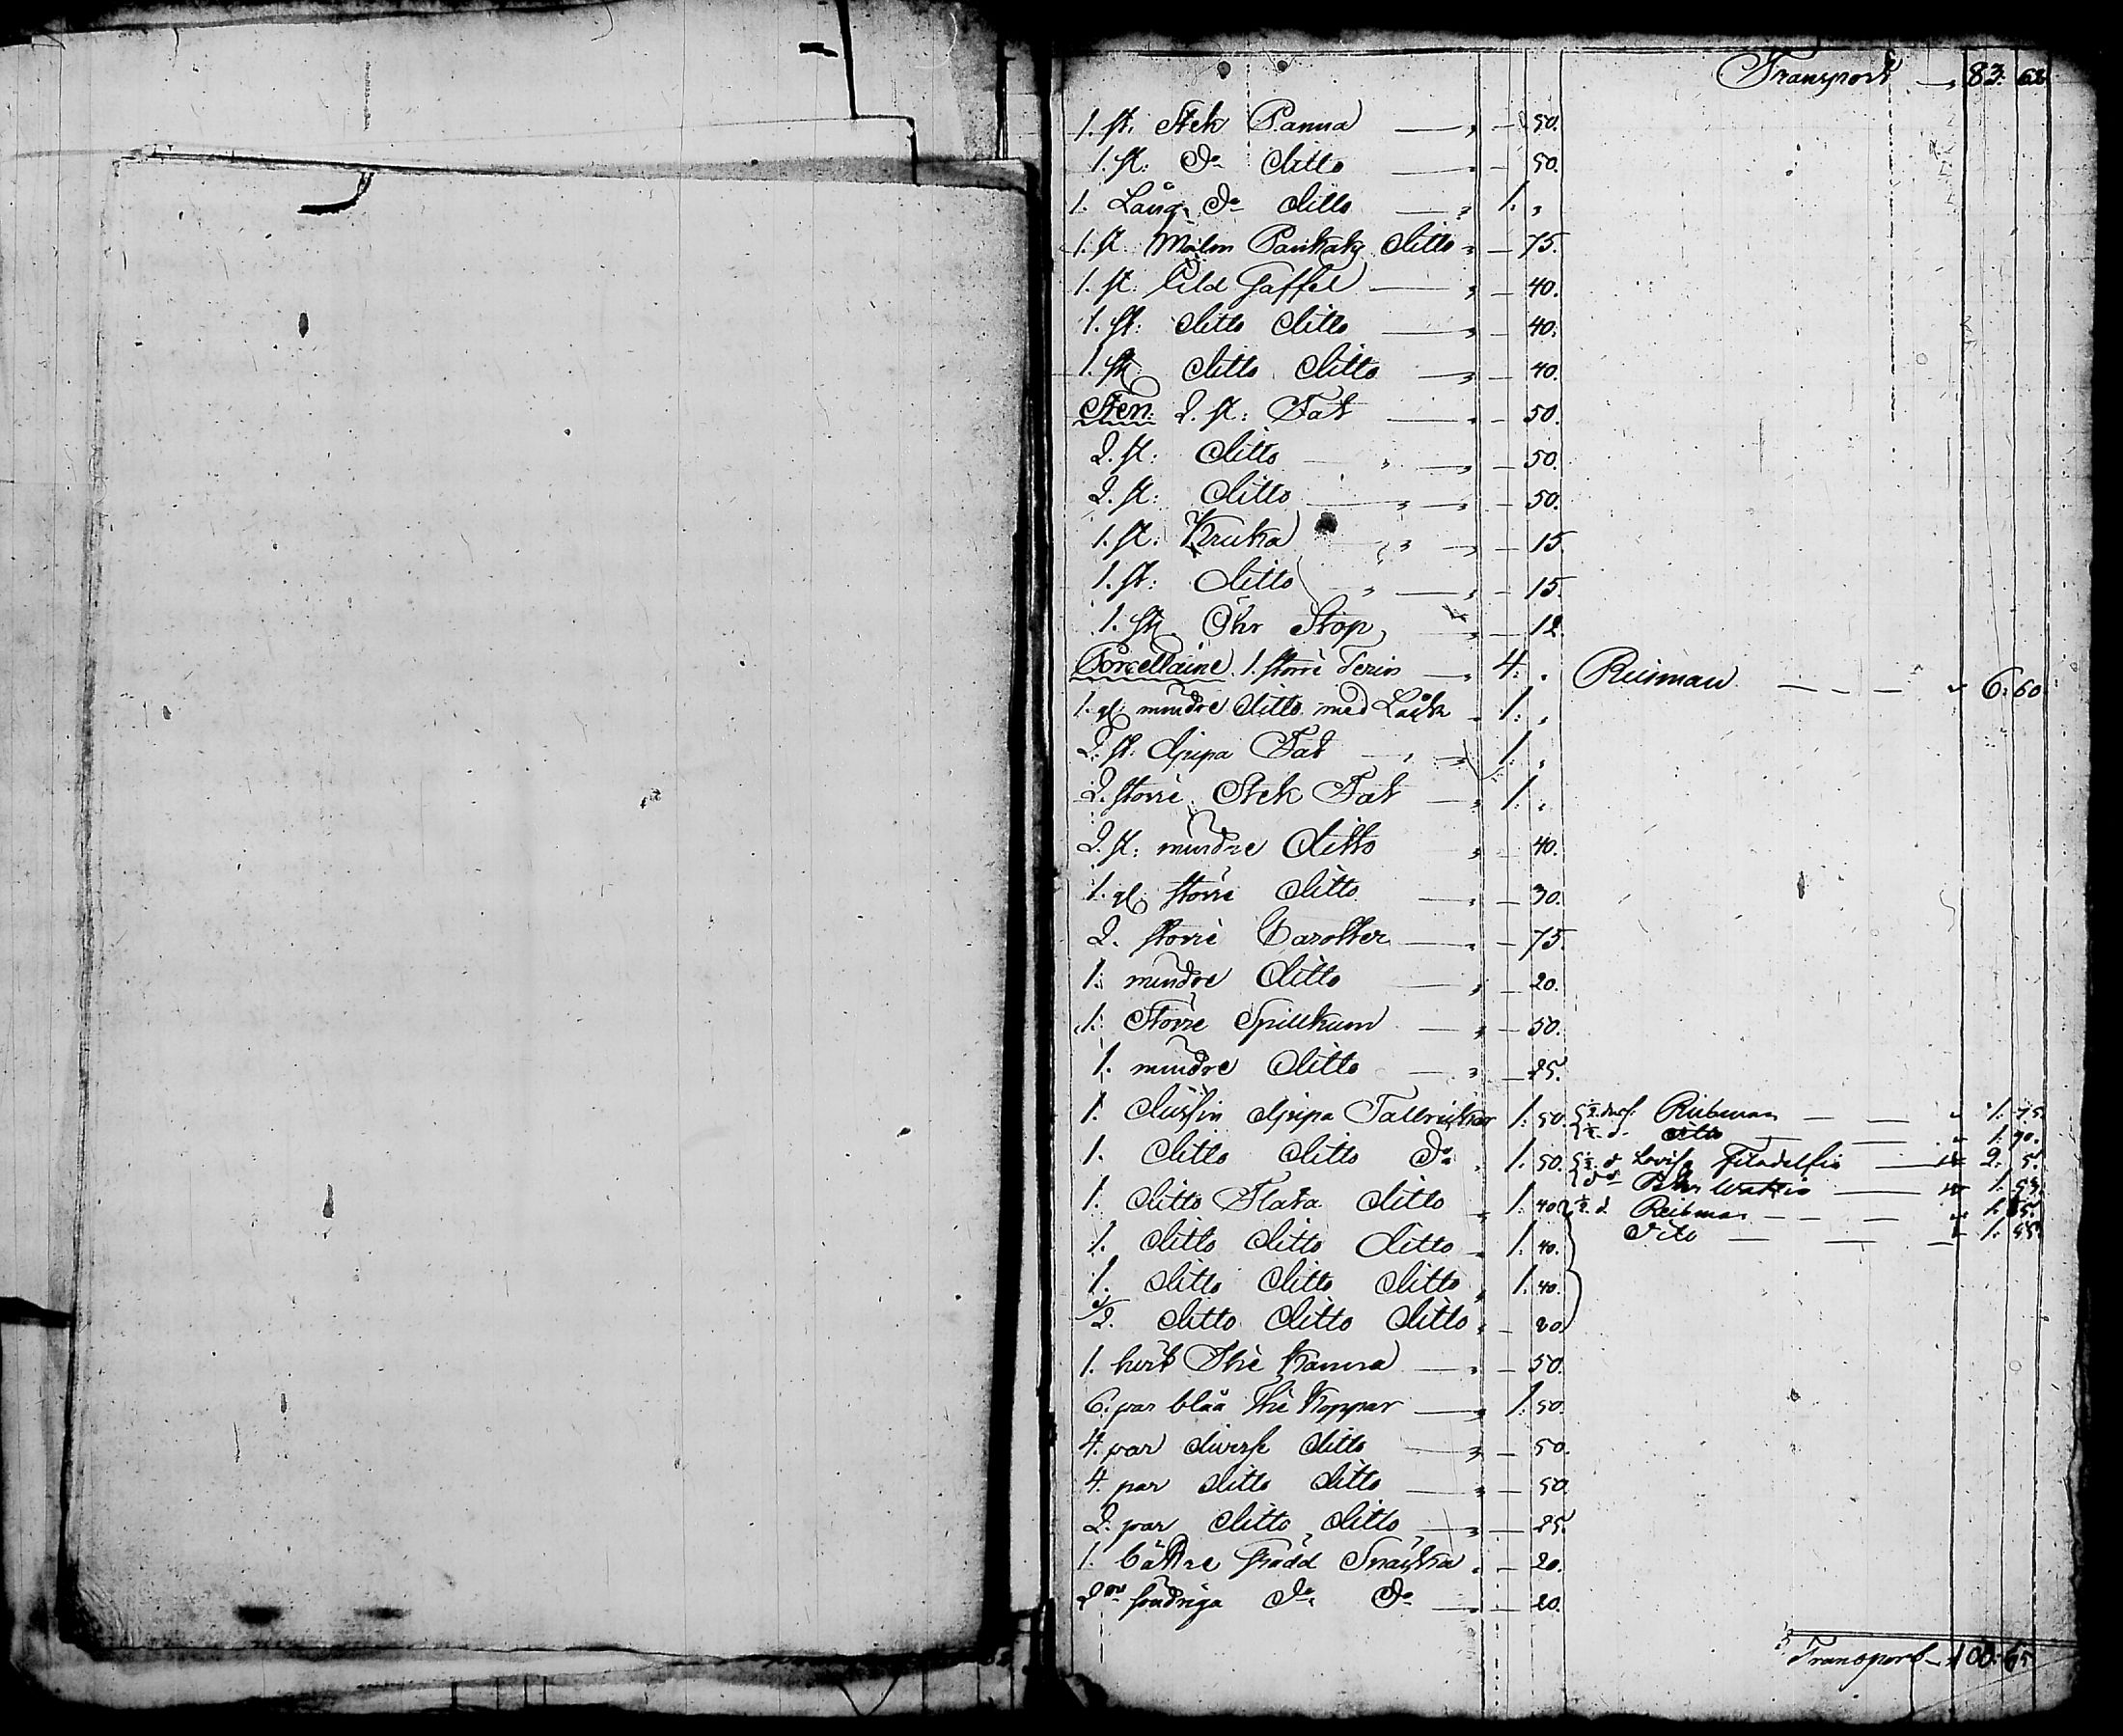 Transport — 83. 62
1. st. Stek Panna — „ — 50.
1. st: Do ditto — — 50.
1. Lång Do ditto — „ 1. „
1. st. Malm Pankaks ditto „ — 75.
1. st. Eld Gaffel — „ — 40.
1. st: ditto ditto — „ — 40.
1. st ditto ditto — „ — 40.
Sten: 2. st: Fat — „ — 50.
2. st: ditto „ — „ — 50.
2. st: ditto — „ — „ — 50.
1. st: Kruka „ — „ — 15.
1. st: ditto „ — „ — 15.
1. st Öhr Stop — „ — 12.
Porcellaine. 1. större Terin — „ 4. „ Reisman — — — „ 6. 60
1. gl mindre ditto med Låck „ 1. „
2. st. djupa Fat — „ 1. „
2. större Stek Fat — „ 1. „
2. st: mindre ditto „ — 40.
1. gl större ditto — „ — 30.
2. större Carotter — „ — 75.
1. mindre ditto — „ — 20.
1. Större Spillkum — „ — 50.
1. mindre ditto — „ — 25.
1. dussin djupa Tallrickar 1. 50. ½ dus: Reisman — — „ 1. 75.
½ d. ditto — — „ 1. 70.
1. ditto ditto Do „ 1. 50. ½ d Lovisa Filadelfia — 2. 5.
do — 1. 53.
1. ditto Flata ditto „ 1. 40 ½ d Reisman — — — „ 1. 55.
1. ditto ditto ditto „ 1. 40. Dito — — — 1. 55.
1. ditto ditto ditto „ 1. 40.
½ ditto ditto ditto „ — 20
1. hvit The Kanna — „ — 50.
6. par blåa The Koppar — „ 1. 50.
4. par diverse ditto — „ — 50.
4. par ditto ditto — „ — 50
2. par ditto ditto — „ — 25.
1. bättre Grädd Snäcka „ — 20.
2ne söndriga Do Do — „ — 20.
Transport — 100. 65